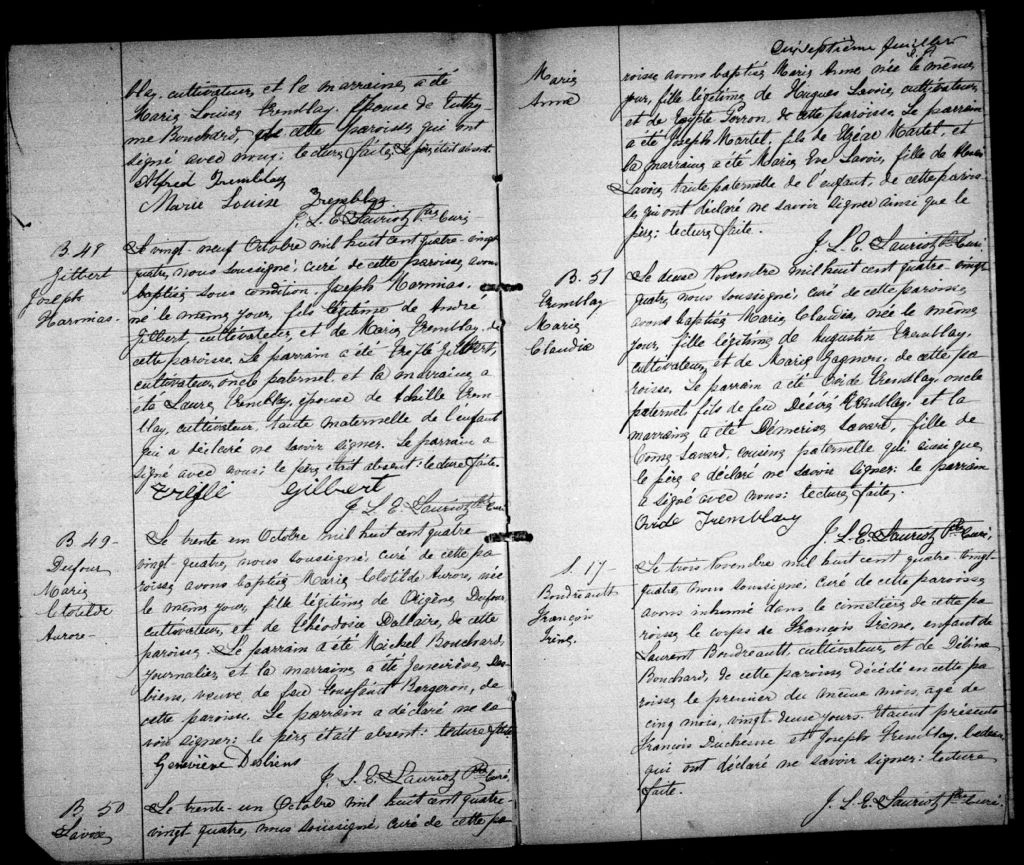 blay, cultivateur, et la marraine a été
Marie Louise Tremblay, épouse de Euthy-
me Bouchard, de cette paroisse qui ont
signé avec nous; lecture faite. Le père était absent.
Alfred Tremblay
Marie Louise Tremblay
J. L. E. Lauriot Ptre Curé
B. 48
Gilbert
Joseph
Harmias.
Le vingt neuf Octobre mil huit cent quatre-vingt
quatre, nous soussigné, curé de cette paroisse avons
baptisé sous condition, Joseph Harmias,
né le même jour, fils légitime de André
Gilbert, cultivateur, et de Marie Tremblay, de
cette paroisse. Le parrain a été Trefflé Gilbert,
cultivateur, oncle paternel, et la marraine a
été Laure Tremblay, épouse de Achille Trem-
blay, cultivateur, tante maternelle de l'enfant
qui a déclaré ne savoir signer. Le parrain a
signé avec nous; le père était absent: lecture faite.
Trefflé Gilbert
J. L. E. Lauriot Ptre Curé
B 49-
Dufour
Marie
Clotilde
Aurore-
Le trente en Octobre mil huit cent quatre-
vingt quatre, nous soussigné, curé de cette pa-
roisse avons baptisé Marie Clotilde Aurore, née
le même jour, fille légitime de Origène Dufour
cultivateur, et de Théodoice Dallaire, de cette
paroisse. Le parrain a été Michel Bouchard,
journalier, et la marraine a été Geneviève Des-
biens, veuve de feu Toussaint Bergeron, de
cette paroisse. Le parrain a déclaré ne sa-
voir signer; le père était absent: lecture faite
Geneviève Desbiens
J. L. E. Lauriot Ptre Curé
B. 50
Lavoie
Le trente-un Octobre mil huit cent quatre-
vingt quatre, nous soussigné, curé de cette pa-
Dix septième feuillet
Marie
Anne
roisse avons baptisé Marie Anne, née le même
jour, fille légitime de Hugues Lavoie, cultivateur,
et de Perron, de cette paroisse. Le parrain
a été Joseph Martel, fils de Elzéar Martel, et
la marraine a été Marie Eve Lavoie, fille de
Lavoie, tante paternelle de l'enfant, de cette parois-
se, qui ont déclaré ne savoir signer ainsi que le
père: lecture faite.
J. L. E. Lauriot Ptre Curé.
B. 51
Tremblay
Marie
Claudia
Le deux Novembre mil huit cent quatre-vingt
quatre, nous soussigné, curé de cette paroisse
avons baptisé Marie Claudia, née le même
jour, fille légitime de Augustin Tremblay,
cultivateur, et de Marie Gagnon, de cette pa-
roisse. Le parrain a été Ovide Tremblay, oncle
paternel, fils de feu Désiré Tremblay, et la
marraine a été Démerise Savard, fille de
Come Savard, cousine paternelle qui ainsi que
le père a déclaré ne savoir signer: le parrain
a signé avec nous: lecture faite.
Ovide Tremblay
J. L. E. Lauriot Ptre Curé.
S. 17-
Boudreault
François
Irène.
Le trois Novembre mil huit cent quatre-vingt-
quatre, nous soussigné, curé de cette paroisse
avons inhumé dans le cimetière de cette pa-
roisse le corps de François Irène, enfant de
Laurent Boudreault, cultivateur, et de Délina
Bouchard, de cette paroisse, décédé en cette pa-
roisse le premier du même mois, age de
cinq mois, vingt deux jours. Etaient présents
François Duchesne et Joseph Tremblay, bedeau
qui ont déclaré ne savoir signer: lecture
faite.
J. L. E. Lauriot Ptre Curé.